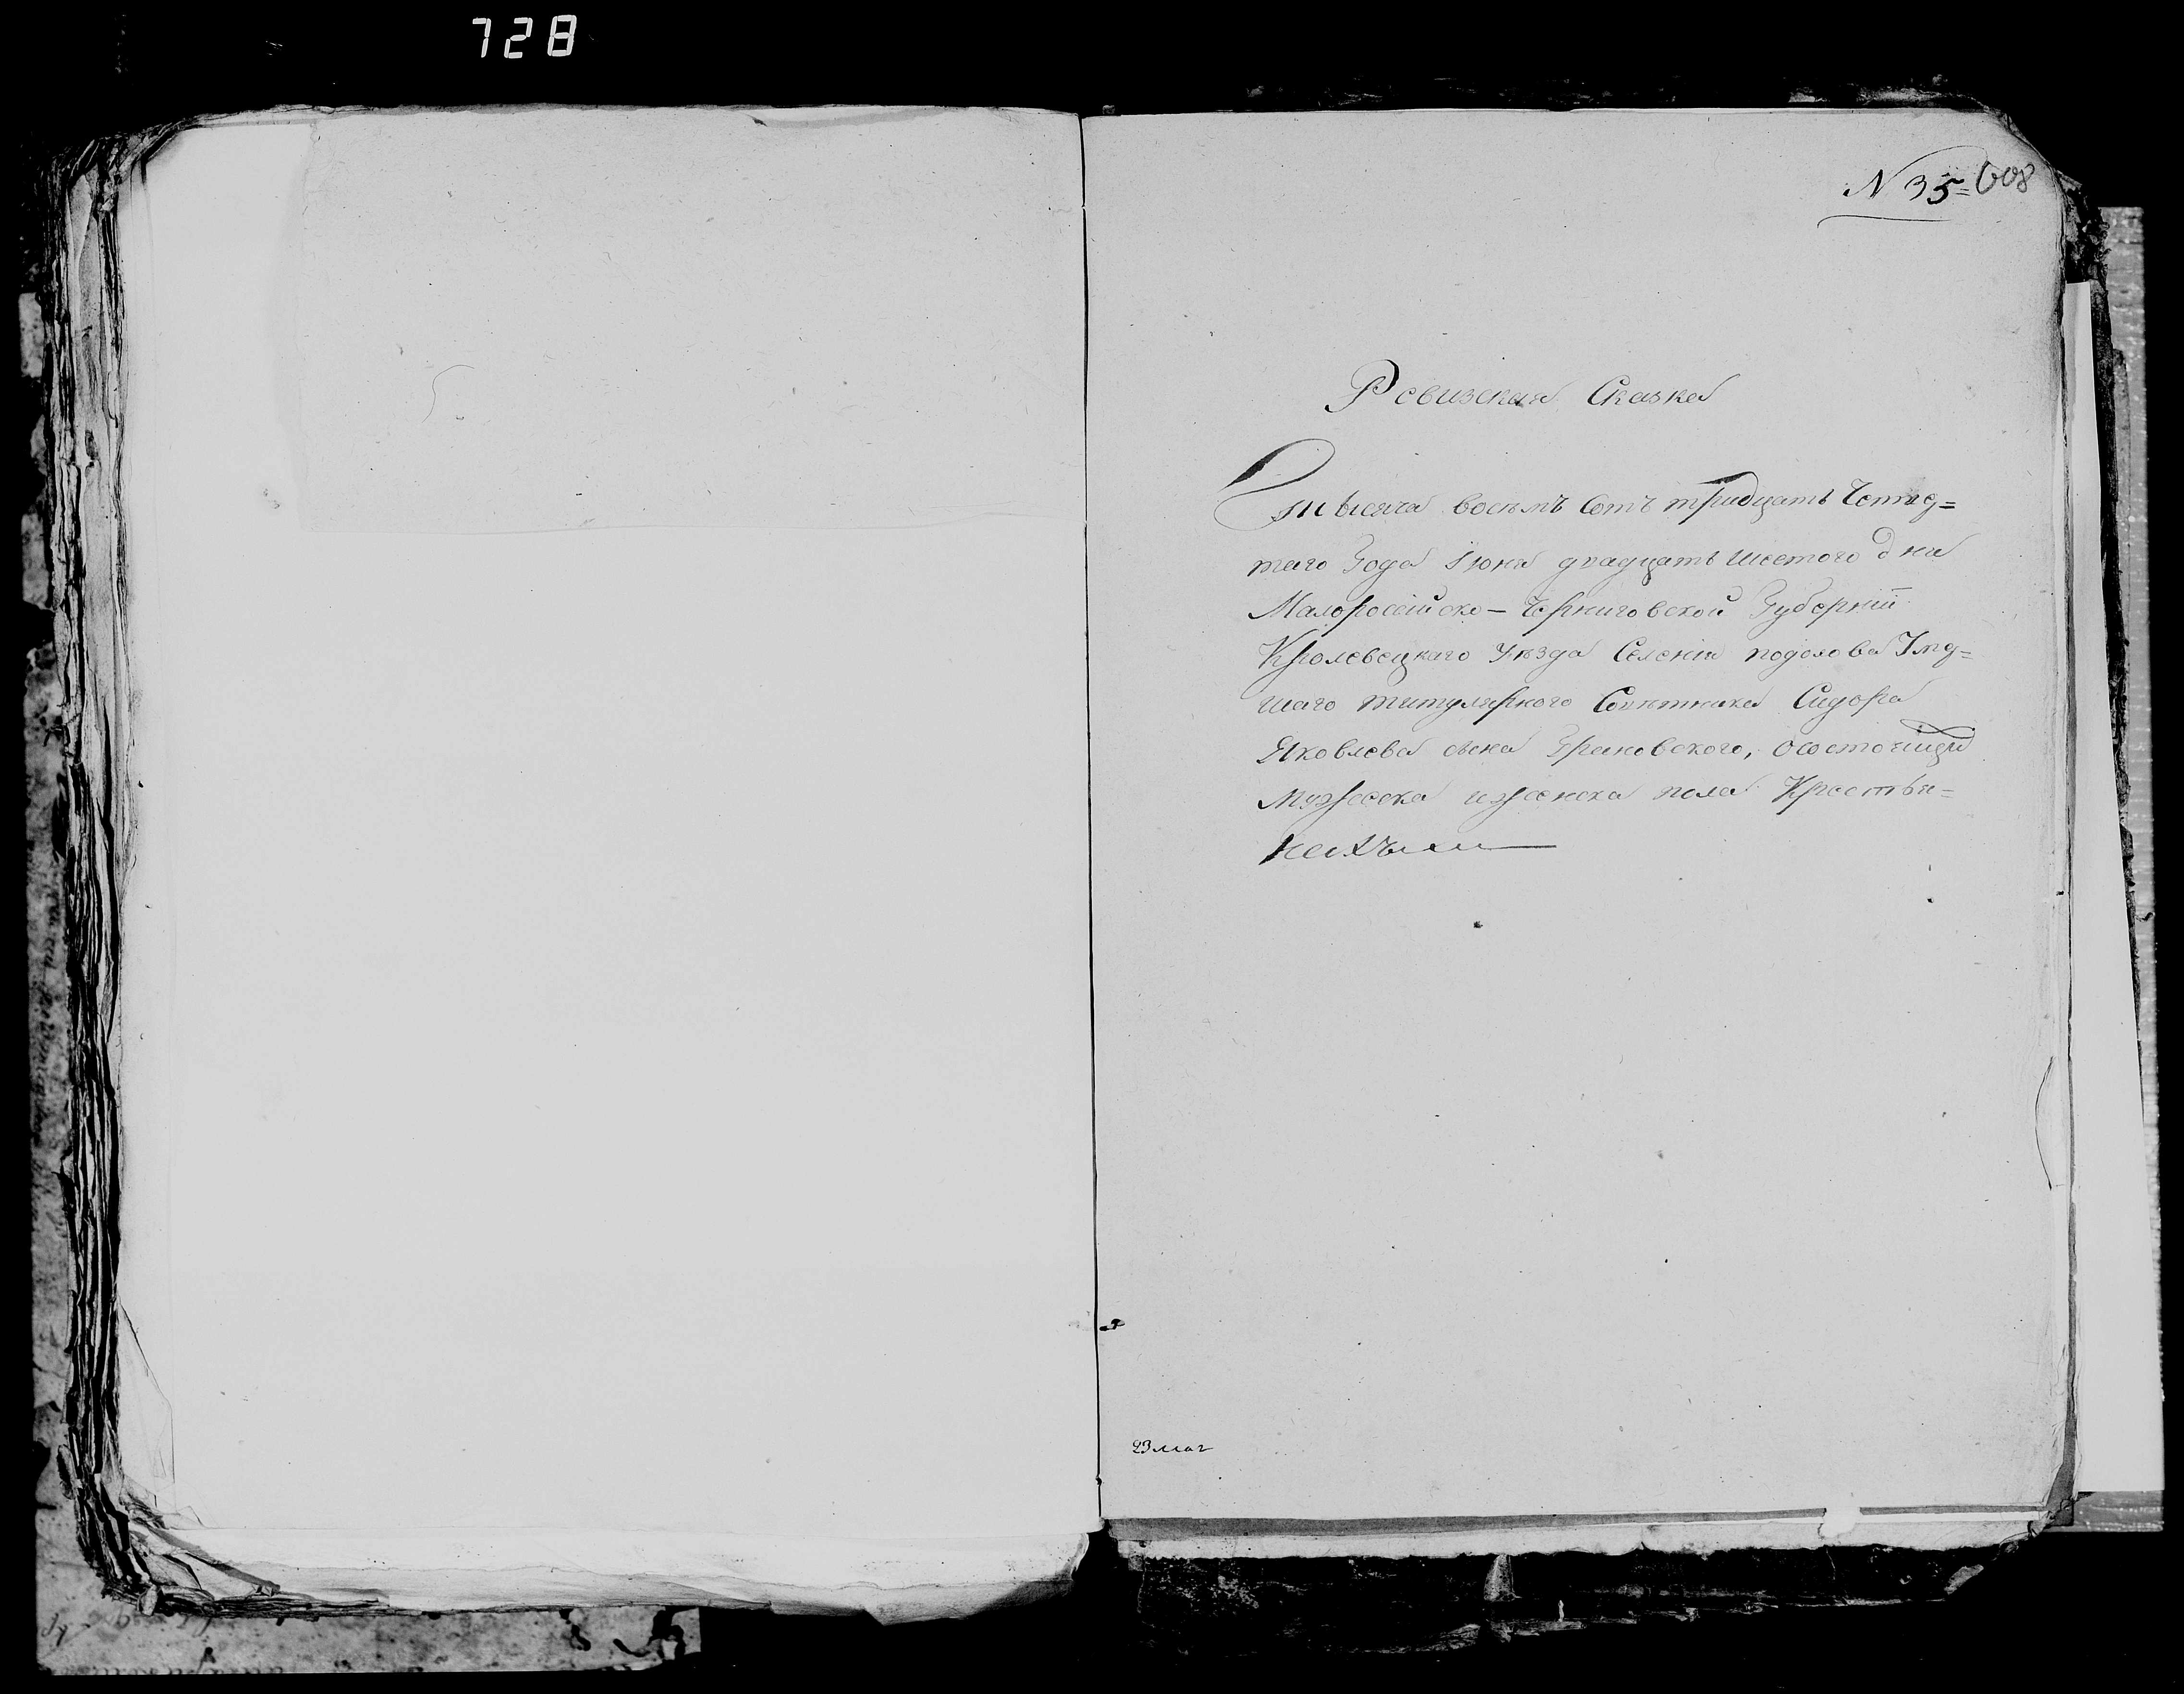 728
N 35= 608
Ревизская Сказка
Тысяча восемъ Сотъ тридцать Четве=
таго Года Іюня двадцать шестого дня
Малоросійско-Черниговской Губерніи
Кролевецкаго Уѣзда Селенія подолова Уме=
шаго титулярного Совѣтника Сидора
Яковлева сына Грановского, осостоящи
Мужеска иженска пола Крестья=
нахъ